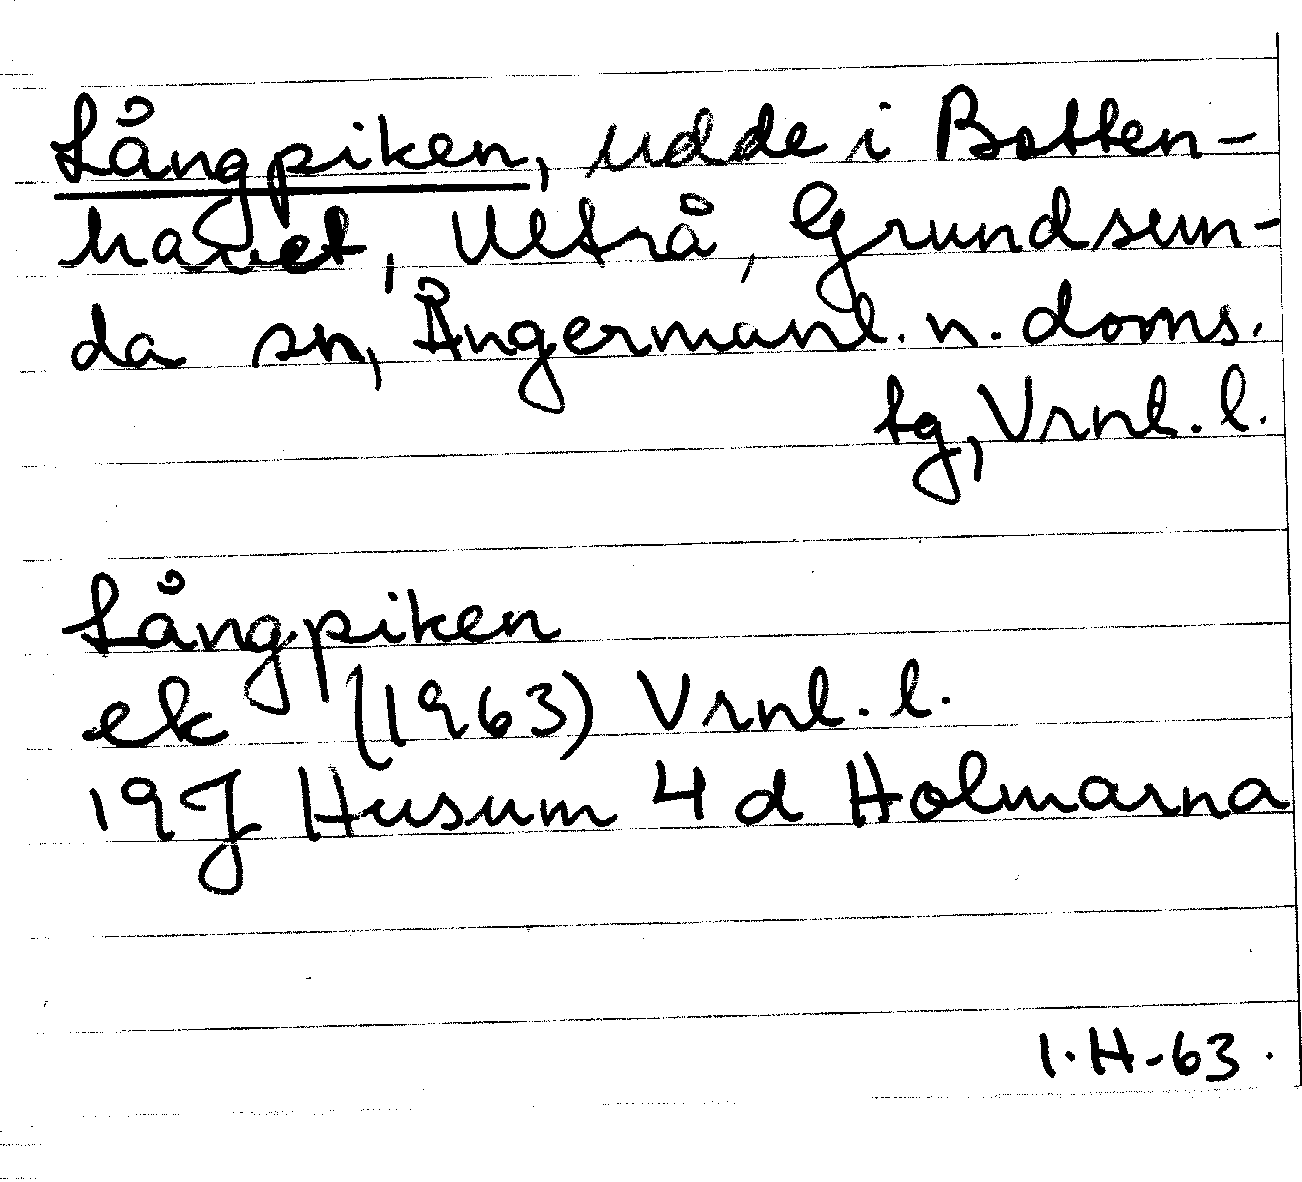 Långpiken, udde i Botten-
havet, Ulfrå, Grundsun-
da sn, Ångermanl. n. doms.
tg, Vrnl. l.
Långpiken
ek (1963) Vrnl. l.
19J Husum 4 d Holmarna
I.H-63.